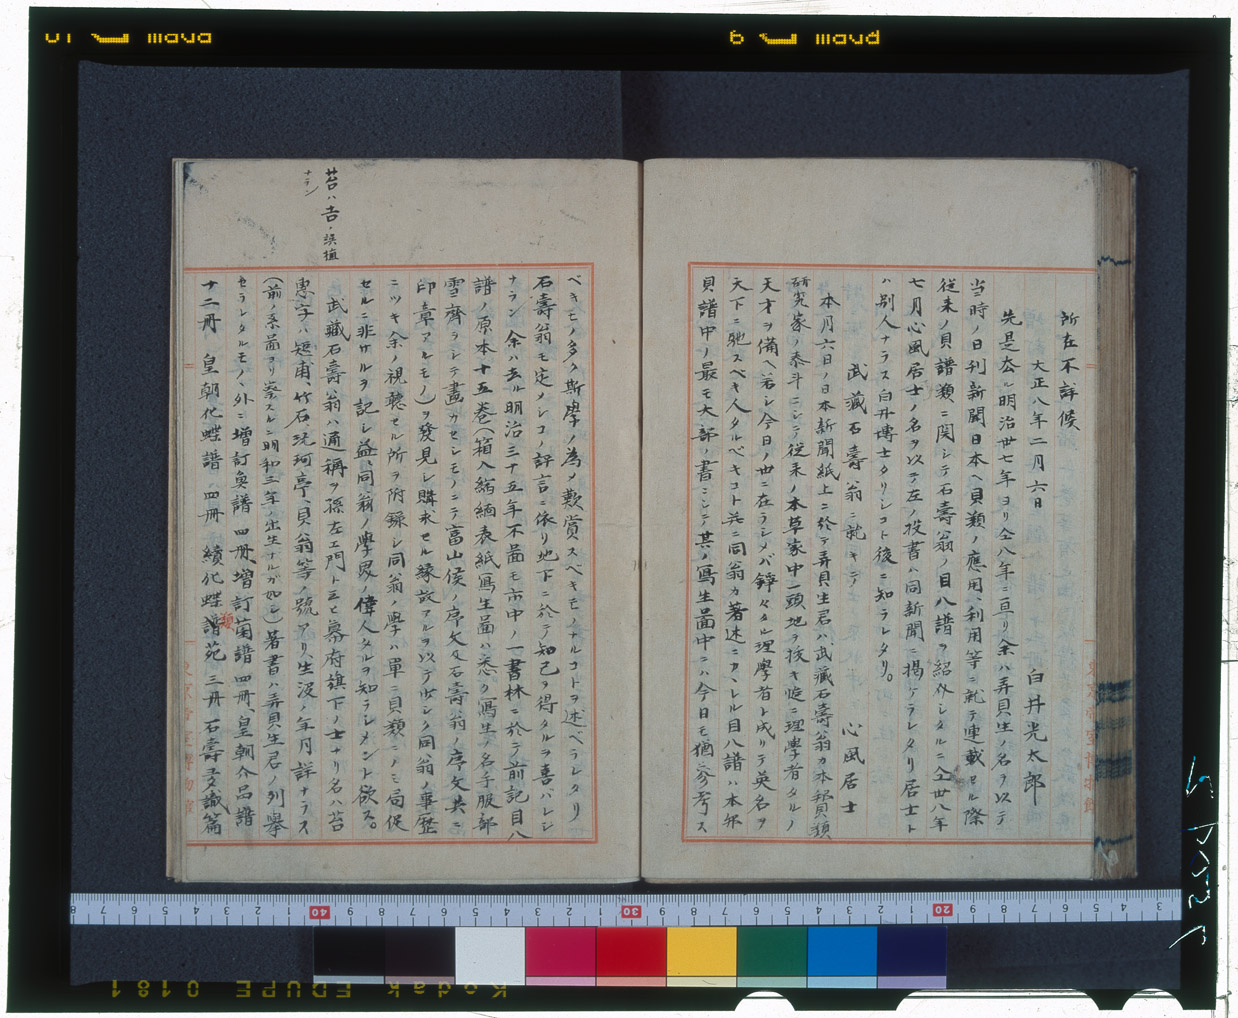 所在不詳候
大正八年二月六日
白井光太郎
先是去ル明治卅七年ヨリ仝八年ニ亘リ余ハ弄貝生ノ名ヲ以テ
当時ノ日刊新聞日本ヘ貝類ノ應用、利用等ニ就テ連載セル際
従来ノ貝譜類ニ関シテ石壽翁ノ目八譜ヲ紹介シタルニ仝卅八年
七月心風居士ノ名ヲ以テ左ノ投書ハ同新聞ニ掲ケラレタリ居士ト
ハ別人ナラス白井博士タリシコト後ニ知ラレタリ。
武藏石壽翁ニ就キテ
心風居士
本月六日ノ日本新聞紙上ニ於テ弄貝生君ハ武藏石壽翁カ本邦貝類
研究家ノ泰斗ニシテ従来ノ本草家中一頭地ヲ抜キ優ニ理學者タルノ
天才ヲ備ヘ若シ今日ノ世ニ在ラシメバ錚々タル理學者ト成リテ英名ヲ
天下ニ馳スベキ人タルベキコト并ニ同翁カ著述ニカヽレル目八譜ハ本邦
貝譜中ノ最モ大部ノ書ニシテ其ノ寫生圖中ニハ今日モ猶ホ参考ス
ベキモノ多ク斯學ノ為メ歎賞スベキモノナルコトヲ述ベラレタリ
石壽翁モ定メシコノ評言ニ依リ地下ニ於テ知己ヲ得タルヲ喜バレシ
ナラン 余ハ去ル明治三十五年不圖モ市中ノ一書林ニ於テ前記目八
譜ノ原本十五巻(箱入縮緬表紙寫生圖ハ悉ク寫生ノ名手服部
雪齊ヲシテ畫カセシモノニテ富山侯ノ序文及石壽翁ノ序文共ニ
印章アルモノ)ヲ發見シ購求セル縁故アルヲ以テ少シク同翁ノ事歴
ニツキ余ノ視聴セル所ヲ附録シ同翁ノ學ハ單ニ貝類ニノミ局促
セルニ非サルヲ記シ益、同翁ノ學界ノ偉人タルヲ知ラシメント欲ス。
武藏石壽翁ハ通稱ヲ孫左エ門ト云ヒ幕府旗下ノ士ナリ名ハ苔
惠字ハ短甫、竹石、玩珂亭、貝翁等ノ號アリ、生没ノ年月詳ナラス
(前ノ系圖ヨリ案スルニ明和三年ノ出生ナルガ如シ)著書ハ弄貝生君ノ列舉
セラレタルモノヽ外ニ増訂奐譜四册、増訂菌譜四册、皇朝介品譜
十二册 皇朝化蝶譜 四册 續化蝶譜苑 三册 石壽叟識篇
類
苔ハ吉ノ誤植
ナラン